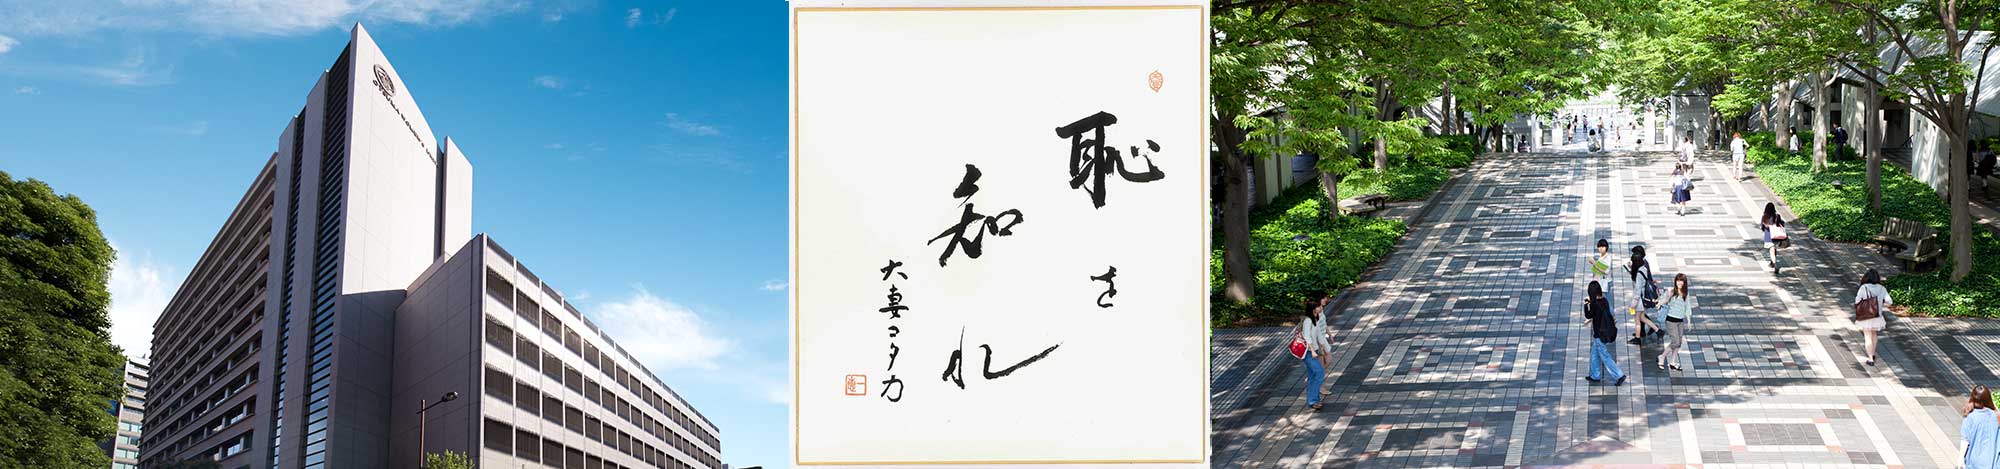 OTSUMA WOMEN'S
恥を
知れ
大妻コタカ